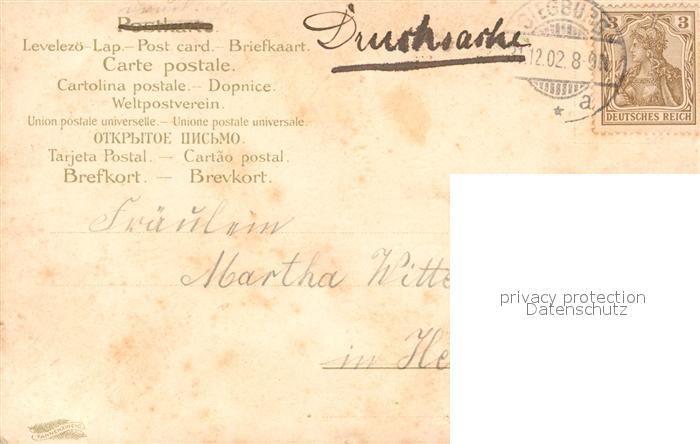 Postkarte
Levelezö-Lap.-Post card.-Briefkaart.
Carte postale.
Cartolina postale.- Dopnice.
Weltpostverein.
Union postale universelle.- Unione postale universale.
ОТКРЫТОЕ ПИСЬМО.
Tarjeta Postal. — Cartão postal.
Brefkort. — Brevkort.
Drucksache
12.02. 8-9
* a
3 3
DEUTSCHES REICH
Fräulein
Martha Witte
in He
privacy protection
Datenschutz
TANNENZWEIG